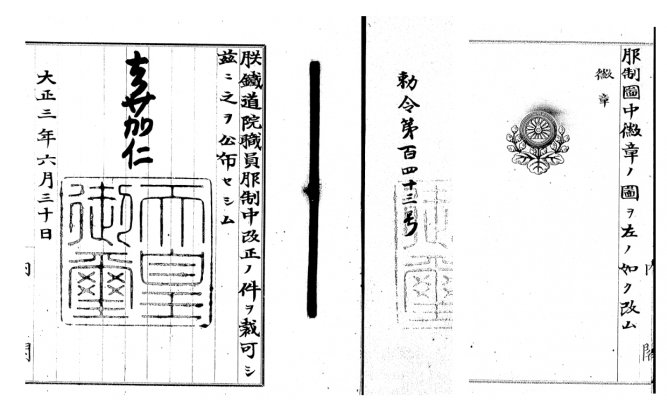 服制圖中徽章ノ圖ヲ左ノ如ク改ム
徽章
勅令第百四十三号
朕鐵道院職員服制中改正ノ件ヲ裁可シ
茲ニ之ヲ公布セシム
嘉仁
天皇
御璽
大正三年六月三十日